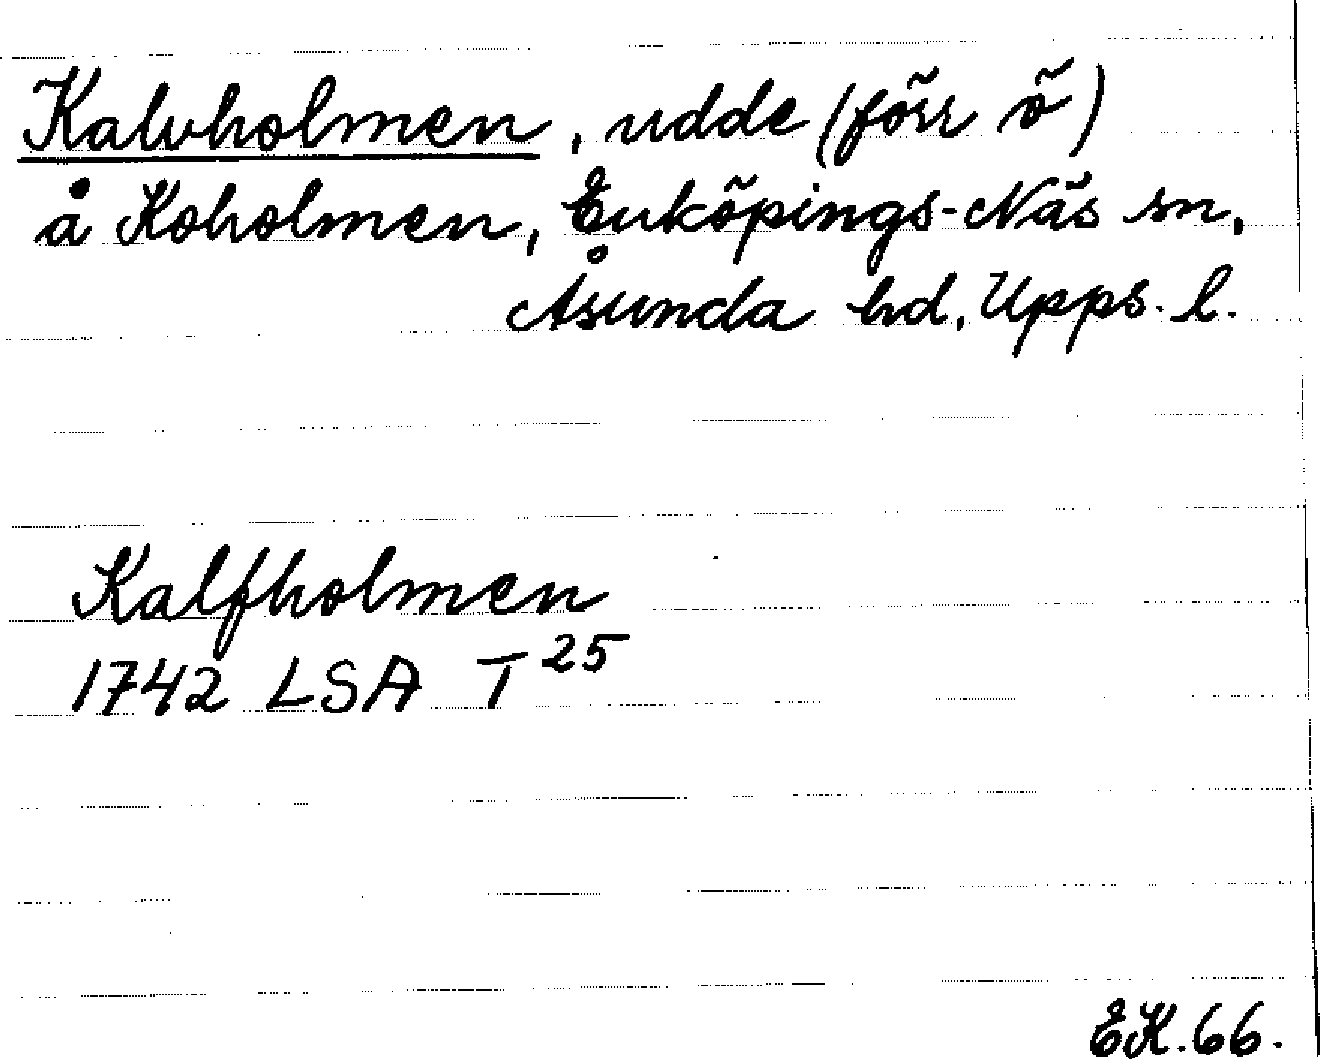 Kalvholmen, udde (förr ö)
å Koholmen, Enköpings-Näs sn,
Åsunda hd, Upps. l.
Kalfholmen
1742 LSA T 25
EK. 66.